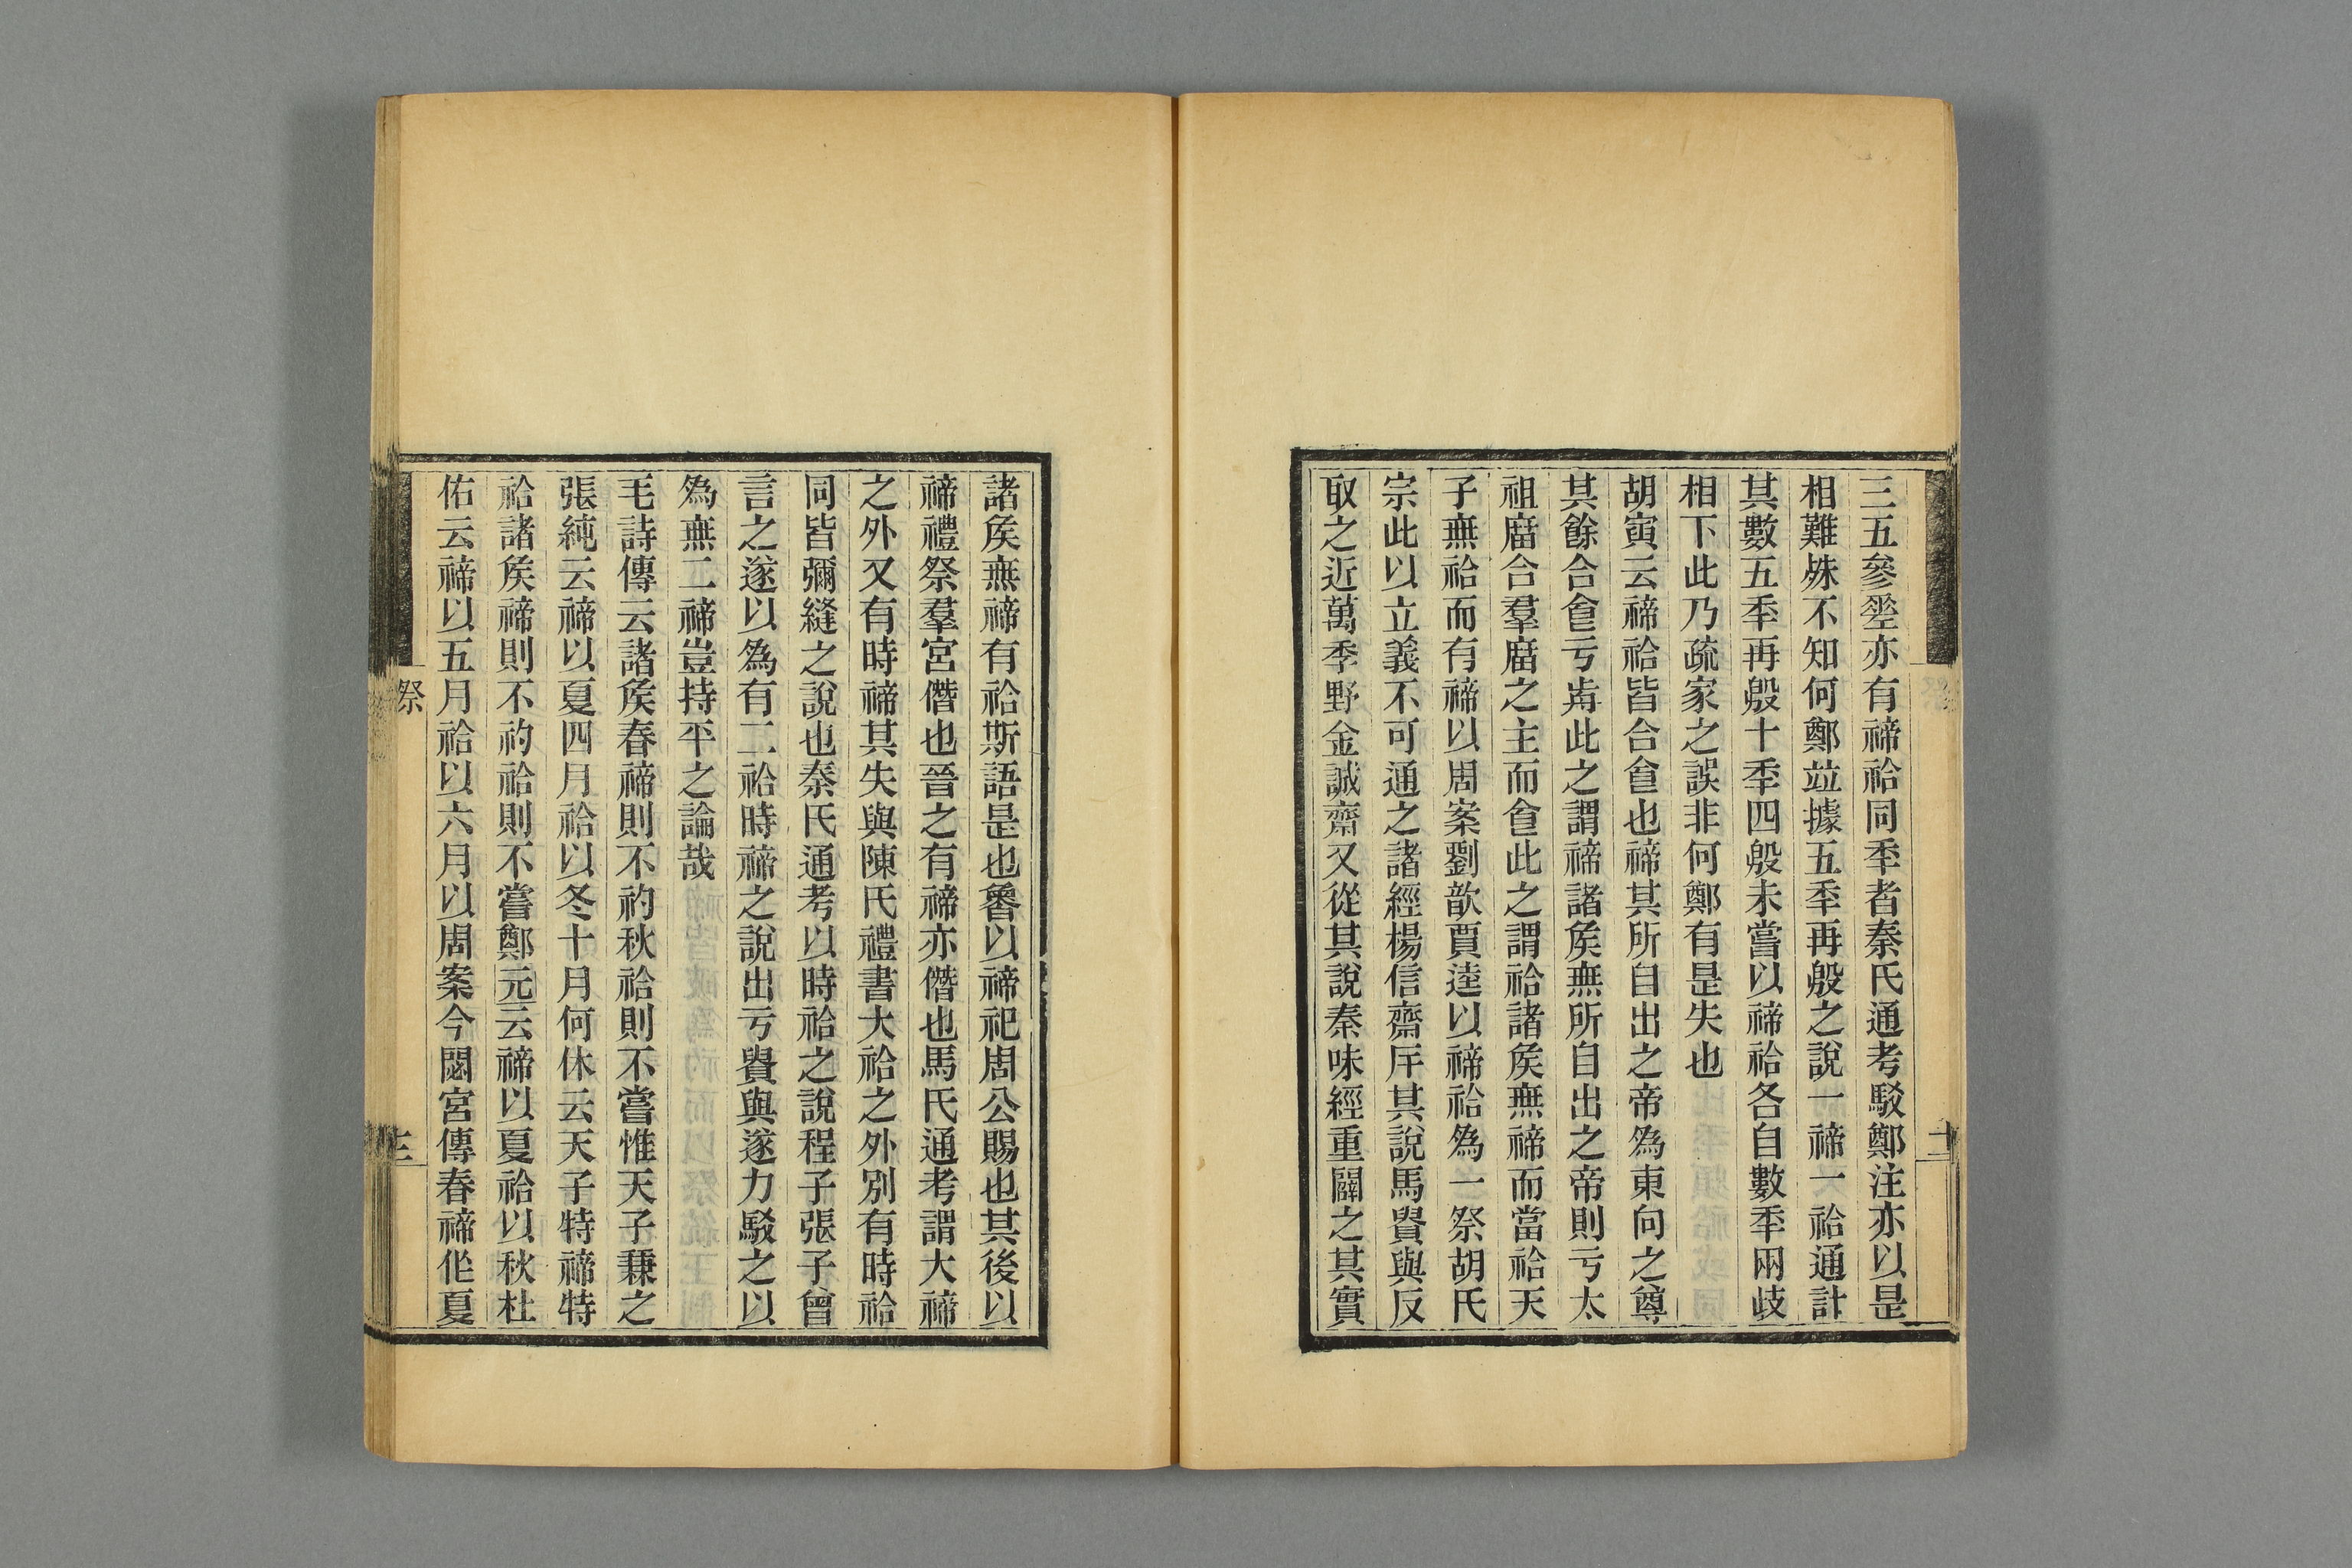 三五參差亦有禘祫同秊者秦氏通考駁鄭注亦以是
相難殊不知何鄭竝據五秊再殷之說一禘一祫通計
其數五秊再殷十秊四殷未嘗以禘祫各自數秊兩歧
相下此乃疏家之誤非何鄭有是失也
胡寅云禘祫皆合食也禘其所自出之帝為東向之尊
其餘合食亏歬此之謂禘諸矦無所自出之帝則亏太
祖廟合羣廟之主而食此之謂祫諸矦無禘而當祫天
子無祫而有禘以周案劉歆賈逵以禘祫為一祭胡氏
宗此以立義不可通之諸經楊信齋斥其說馬貴與反
取之近萬季野金誠齋又從其說秦味經重闢之其實
諸矦無禘有祫斯語是也魯以禘祀周公賜也其後以
禘禮祭羣宮僭也晉之有禘亦僭也馬氏通考謂大禘
之外又有時禘其失與陳氏禮書大祫之外別有時祫
同皆彌縫之說也秦氏通考以時祫之說程子張子曾
言之遂以為有二祫時禘之說出亏貴與遂力駁之以
為無二禘豈持平之論哉
毛詩傳云諸矦春禘則不礿秋祫則不嘗惟天子兼之
張純云禘以夏四月祫以冬十月何休云天子特禘特
祫諸矦禘則不礿祫則不嘗鄭元云禘以夏祫以秋杜
佑云禘以五月祫以六月以周案今閟宮傳春禘作夏
祭